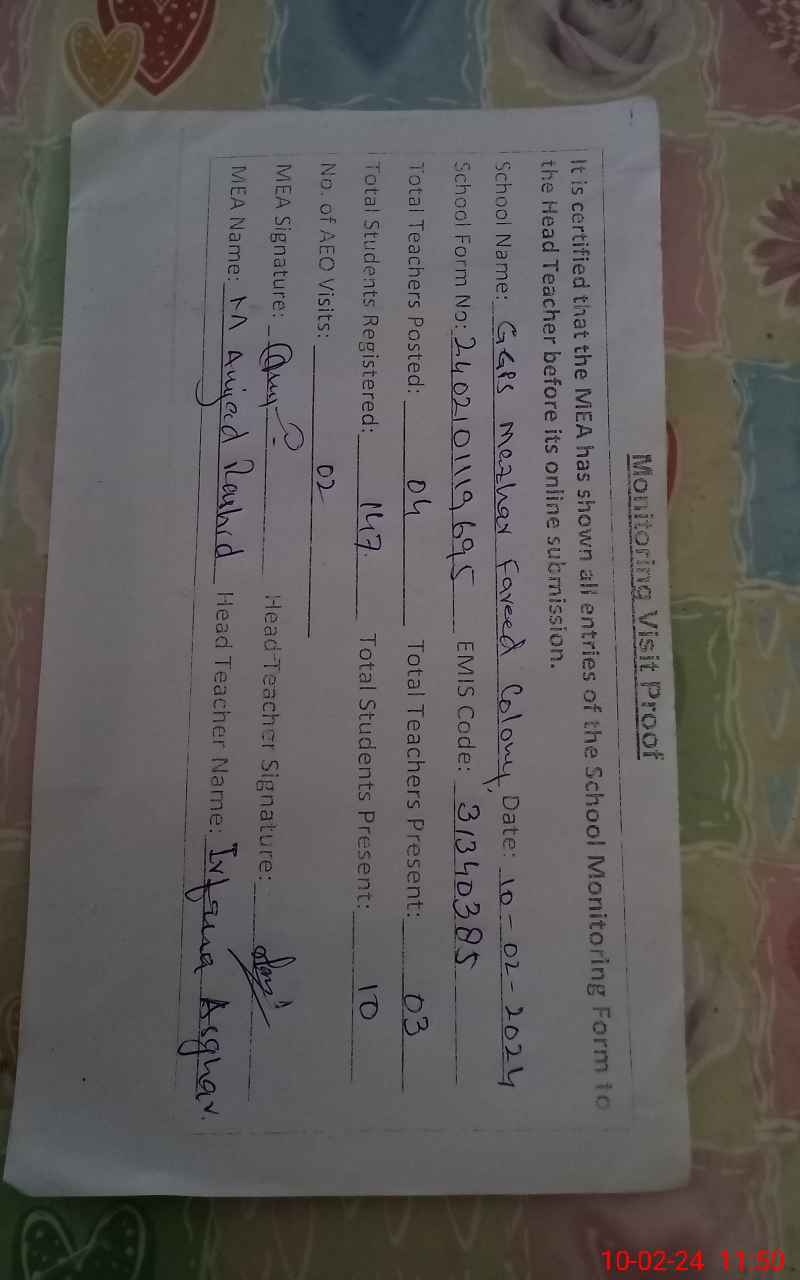 Monitoring Visit Proof
It is certified that the MEA has shown all entries of the School Monitoring Form to
the Head Teacher before its online submission.
School Name: GGPS Mezhar Fareed Colony, Date: 10-02-2024
School Form No: 2402101119695 EMIS Code: 31340385
Total Teachers Posted: 04 Total Teachers Present: 03
Total Students Registered: 147 Total Students Present: 10
No. of AEO Visits: 02
MEA Signature: Head Teacher Signature:
MEA Name: M Amjad Rashid Head Teacher Name: Irfana Asghar.
10-02-24 11:50